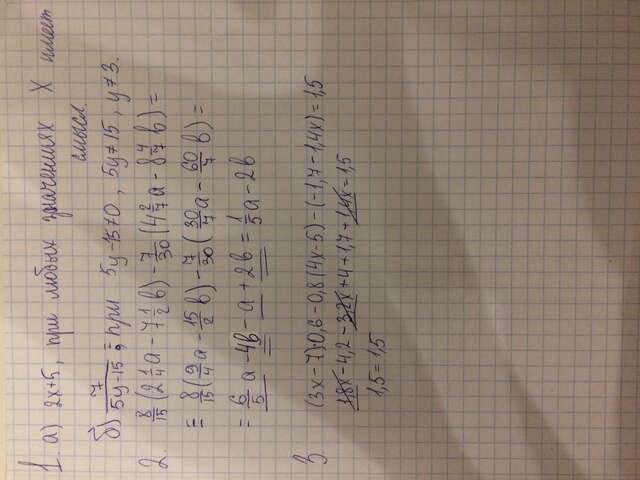 1. а) 2x+5, при любых значениях X имеет
смысл.
б) 7/(5y-15); при 5y-15≠0, 5y≠15, y≠3.
2. 8/15(2 1/4 a - 7 1/2 b) - 7/30(4 2/7 a - 8 4/7 b) =
= 8/15(9/4 a - 15/2 b) - 7/30(30/7 a - 60/7 b) =
= 6/5 a - 4b - a + 2b = 1/5 a - 2b
3. (3x-7)·0,6-0,8(4x-5)-(-1,7-1,4x)=1,5
1,8x-4,2-3,2x+4+1,7+1,4x=1,5
1,5=1,5